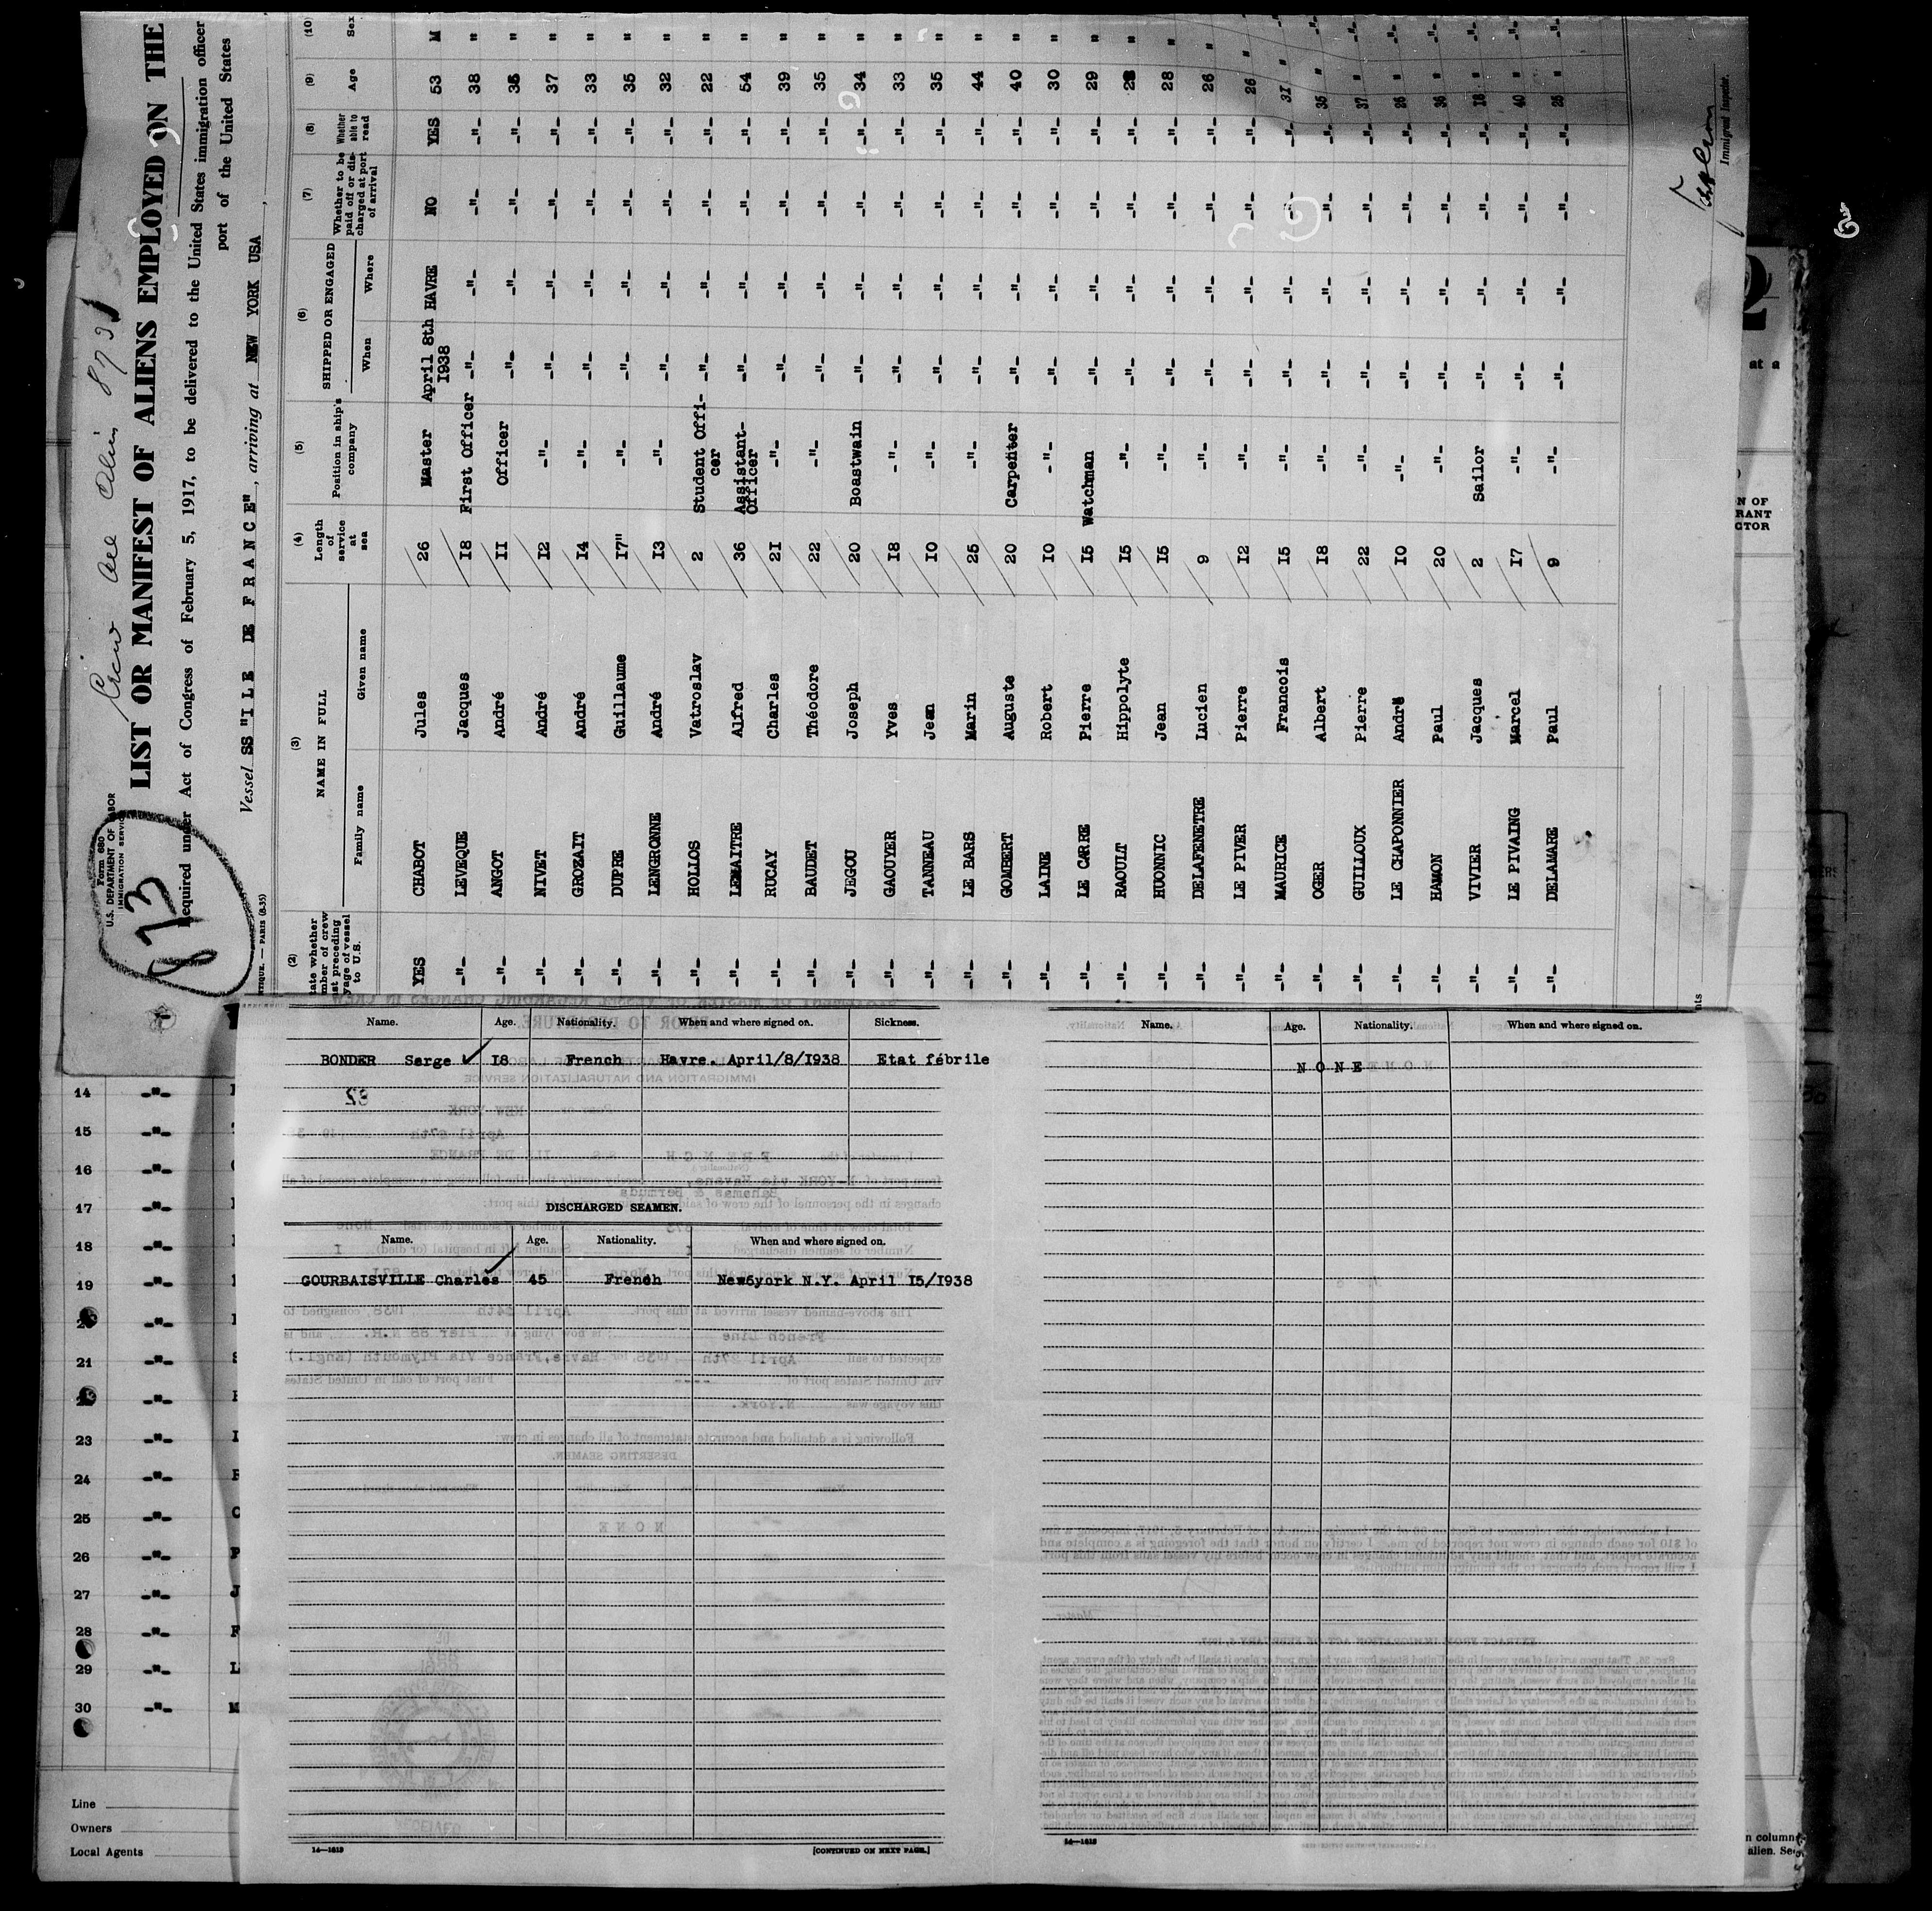 Crew all alien 873
873
Form 680
U.S. DEPARTMENT OF LABOR
IMMIGRATION SERVICE
LIST OR MANIFEST OF ALIENS EMPLOYED ON THE
Required under Act of Congress of February 5, 1917, to be delivered to the United States immigration officer
port of the United States
Vessel SS "ILE DE FRANCE", arriving at NEW YORK USA,
PARIS (8.35)
(2) (3) (4) (5) (6) (7) (8) (9) (10)
NAME IN FULL
Family name Given name
Length of service at sea
Position in ship's company
SHIPPED OR ENGAGED
When Where
Whether to be paid off or discharged at port of arrival
Whether able to read
Age Sex
to U.S.
YES CHABOT Jules 26 Master April 8th 1938 HAVRE NO YES 53 M
-"- LEVEQUE Jacques 18 First Officer -"- -"- -"- -"- 38 "
-"- ANGOT André 11 Officer -"- -"- -"- -"- 35 "
-"- NIVET André 12 -"- -"- -"- -"- -"- 37 "
-"- GROZAIT André 14 -"- -"- -"- -"- -"- 33 "
-"- DUPRE Guillaume 17" -"- -"- -"- -"- -"- 35 "
-"- LENGRONNE André 13 -"- -"- -"- -"- -"- 32 "
-"- HOLLOS Vatroslav 2 Student Officer -"- -"- -"- -"- 22 "
-"- LEMAITRE Alfred 36 Assistant-Officer -"- -"- -"- -"- 54 "
-"- RUCAY Charles 21 -"- -"- -"- -"- -"- 39 "
-"- BAUDET Théodore 22 -"- -"- -"- -"- -"- 35 "
-"- JEGOU Joseph 20 Boastwain -"- -"- -"- -"- 34 "
-"- GAOUYER Yves 18 -"- -"- -"- -"- -"- 33 "
-"- TANNEAU Jean 10 -"- -"- -"- -"- -"- 35 "
-"- LE BARS Marin 25 -"- -"- -"- -"- -"- 44 "
-"- GOMBERT Auguste 20 Carpenter -"- -"- -"- -"- 40 "
-"- LAINE Robert 10 -"- -"- -"- -"- -"- 30 "
-"- LE CARRE Pierre 15 Watchman -"- -"- -"- -"- 29 "
-"- RAOULT Hippolyte 15 -"- -"- -"- -"- -"- 28 "
-"- HUONNIC Jean 15 -"- -"- -"- -"- -"- 28 "
-"- DELAFENETRE Lucien 9 -"- -"- -"- -"- -"- 26 "
-"- LE PIVER Pierre 12 -"- -"- -"- -"- -"- 26 "
-"- MAURICE Francois 15 -"- -"- -"- -"- -"- 31 " -"-
-"- OGER Albert 18 -"- -"- -"- -"- -"- 35 " -"-
-"- GUILLOUX Pierre 22 -"- -"- -"- -"- -"- 37 " -"-
-"- LE CHAPONNIER André 10 -"- -"- -"- -"- -"- 25 " -"-
-"- HAMON Paul 20 -"- -"- -"- -"- -"- 36 " -"-
-"- VIVIER Jacques 2 Sailor -"- -"- -"- -"- 18 " -"-
-"- LE PIVAING Marcel 17 -"- -"- -"- -"- -"- 40 " -"-
-"- DELAMARE Paul 9 -"- -"- -"- -"- -"- 25 " -"-
Immigrant Inspector.
Name. Age. Nationality. When and where signed on. Sickness.
BONDER Serge 18 French Havre. April/8/1938 Etat fébrile
DISCHARGED SEAMEN.
Name. Age. Nationality. When and where signed on.
GOURBAISVILLE Charles 45 French New6york N.Y. April 15/1938
14—1613
[CONTINUED ON NEXT PAGE.]
Name. Age. Nationality. When and where signed on.
NONE
14—1613
14 -"-
15 -"-
16 -"-
17 -"-
18 -"-
19 -"-
20 -"-
21 -"-
22 -"-
23 -"-
24 -"-
25 -"-
26 -"-
27 -"-
28 -"-
29 -"-
30 -"-
Line
Owners
Local Agents
at a